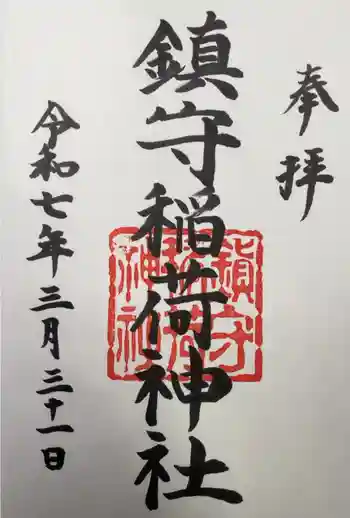 奉拝
鎮守稲荷神社
鎮守稲荷神社
令和七年三月三十一日